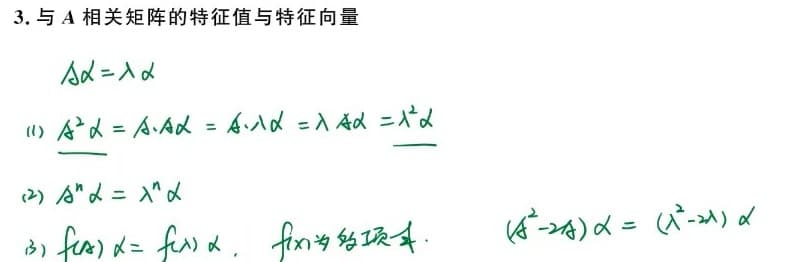 3. 与 A 相关矩阵的特征值与特征向量
Aα = λα
(1) A²α = A·Aα = A·λα = λAα = λ²α
(2) Aⁿα = λⁿα
(3) f(A)α = f(λ)α. f(x)为多项式. (A²-2A)α = (λ²-2λ)α